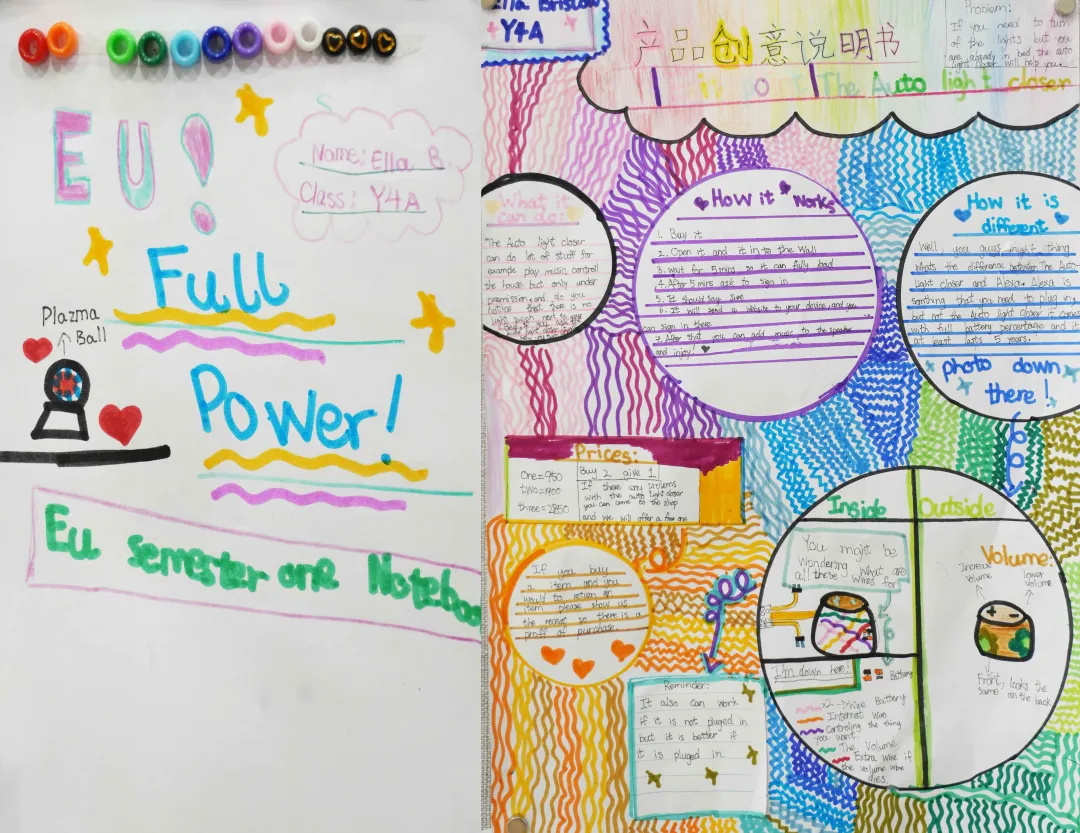 EU!
Name: Ella B
Class: Y4A
Full
Plazma
Ball
Power!
Eu semester one Noteboo
Ella Bristow
Y4A
产品创意说明书
The Auto light closer
Problem:
If you need to turn
of the lights but you
are already in bed the auto
light closer will help you.
What it
can do:
The Auto light closer
can do lot of stuff for
example play music, controll
the house but only under
premission, and do you
notice that there is no
How it Works
1. Buy it
2. Open it and it in to the Wall
3. Wait for 5 mins so it can fully load
4. After 5 mins ask to sign in
5. It should say sure
6. It will send a website to your device, and you
can sign in there
7. After that you can add music to the speaker
and injoy!
How it is
different
Well, you guys might thing
whats the difference between The Auto
light closer and Alexa. Alexa is
somthing that you need to plug in,
but not the Auto light closer it comes
with full battery percentage and it
at least lasts 5 years.
photo down
there!
Prices:
One=950
two=1900
three=2850
Buy 2 give 1
If there any prolems
with the auto light closer
you can come to the shop
and we will offer a free one
If you buy
2 item and you
would to return an
item please show us
the reciept so there is a
proff of purchase.
Reminder:
It also can work
if it is not pluged in
but it is better if
it is pluged in.
Inside
Outside
You might be
wondering, what are
all these wires for?
I'm down here!
Battery
x2 -> Wire Battery
Internet wire
Controling the thing
you want.
The Volume
Extra wire if
the volume wire
dies.
Volume:
Increase
volume
lower
volume
Front, looks the
same on the back